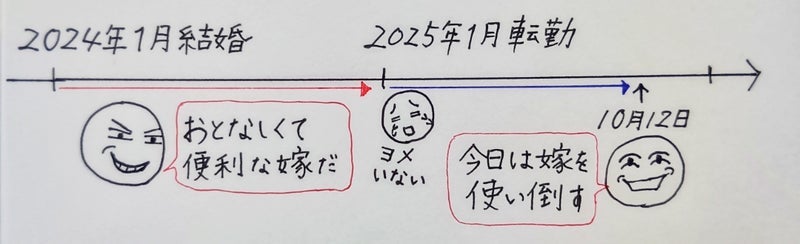 2024年1月結婚
2025年1月転勤
おとなしくて
便利な嫁だ
ヨメ
いない
10月12日
今日は嫁を
使い倒す